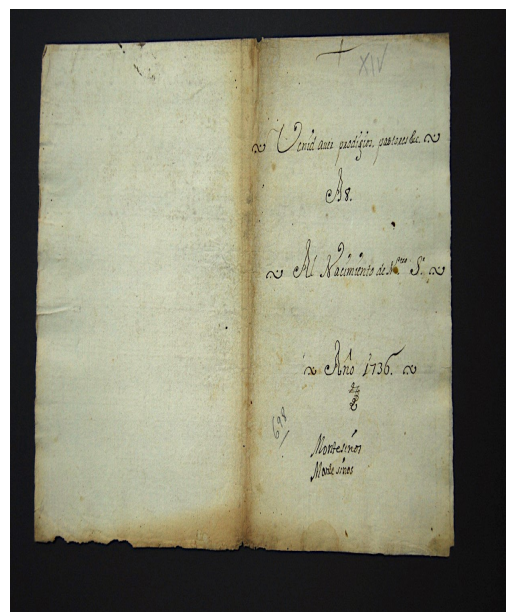 XIV
Venid a ver prodigios, pastores &c.
A 8.
Al Nacimiento de Ntro. Sr.
Año 1736.
698
Montesinos
Montesinos